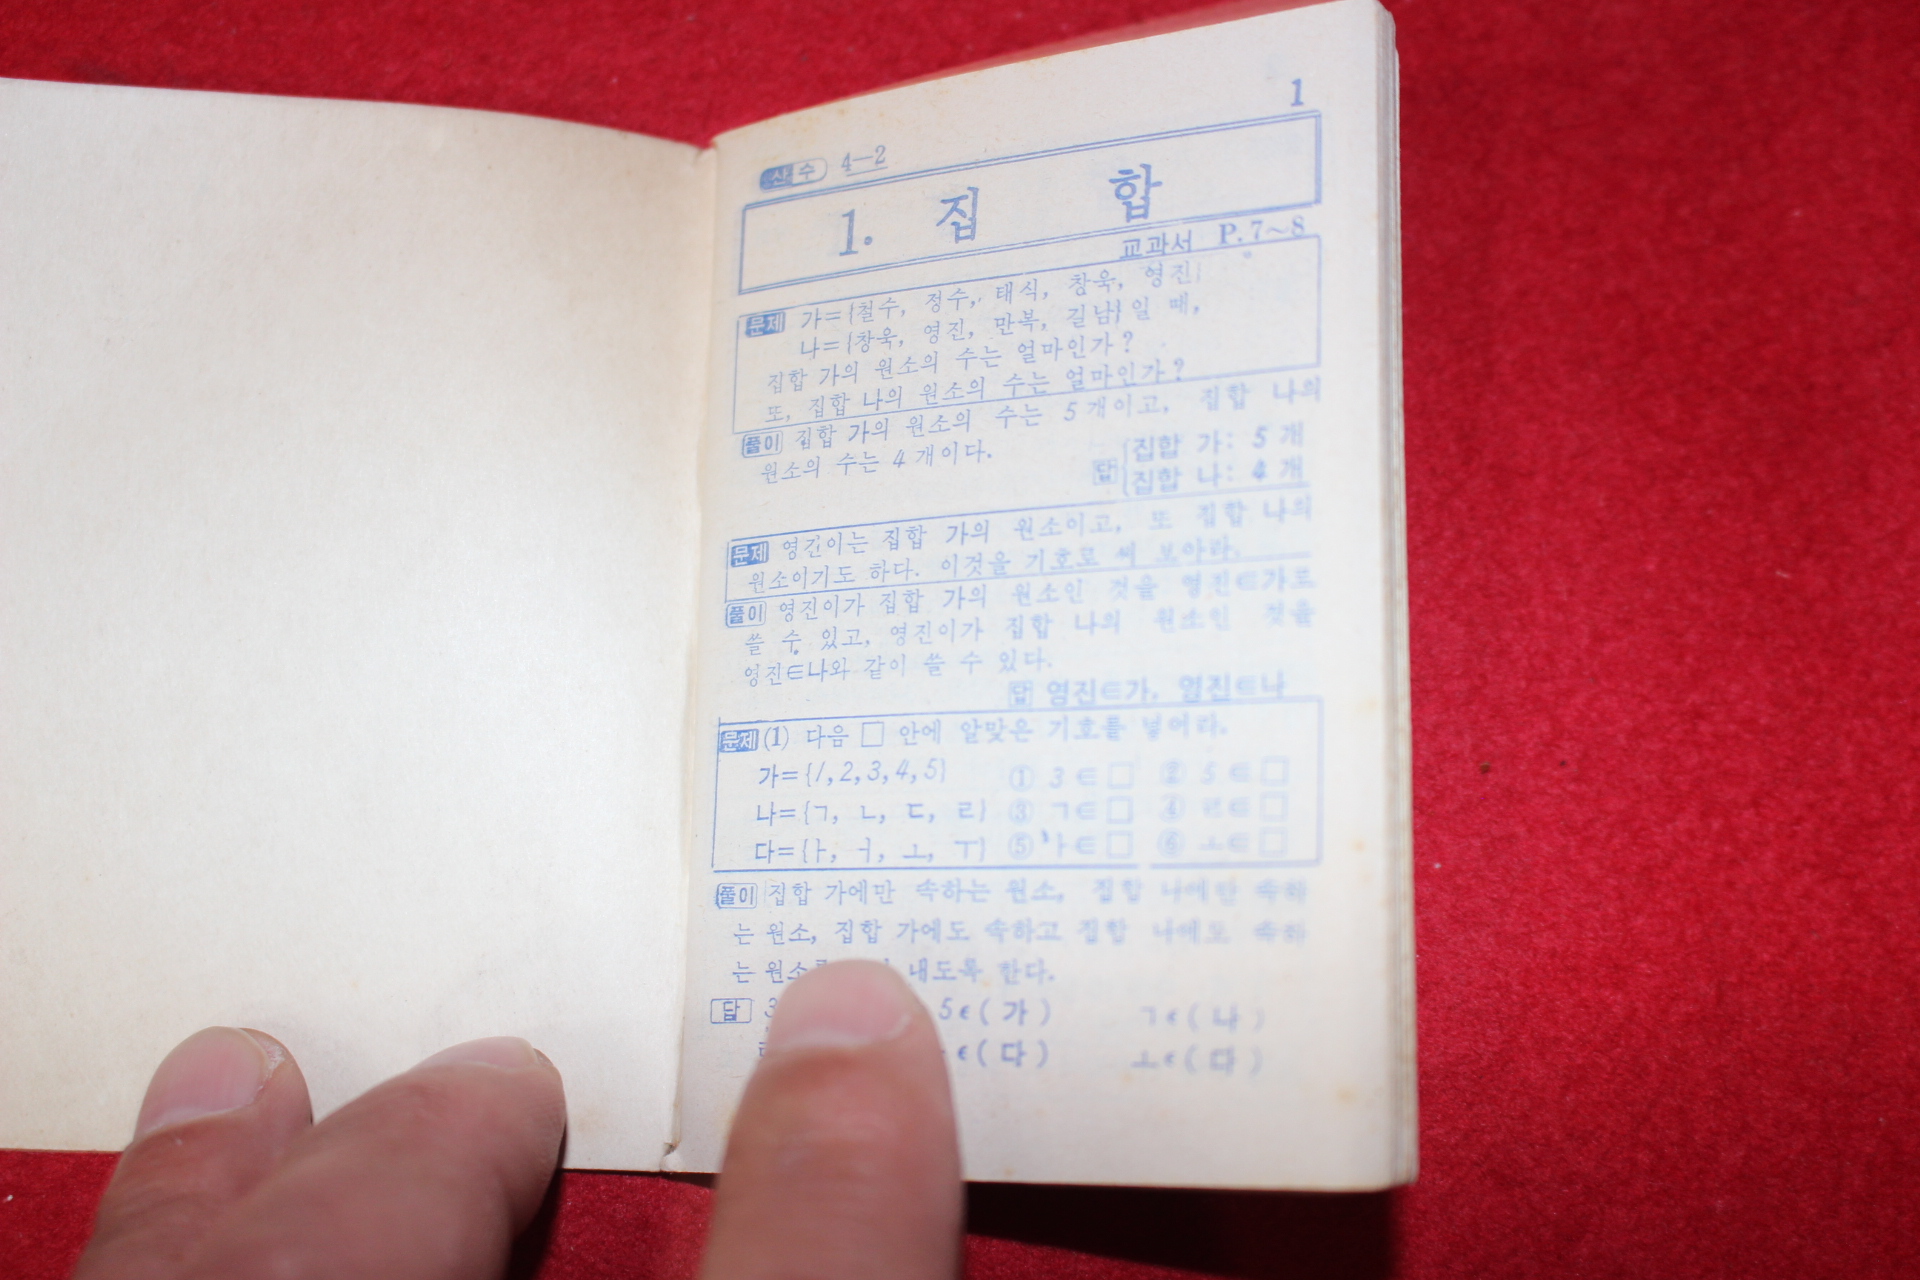 1
산수 4—2
1. 집 합
교과서 P. 7~8
문제 가={철수, 정수, 태식, 창욱, 영진}
나={창욱, 영진, 만복, 길남}일 때,
집합 가의 원소의 수는 얼마인가?
또, 집합 나의 원소의 수는 얼마인가?
풀이 집합 가의 원소의 수는 5개이고, 집합 나의
원소의 수는 4개이다.
답 {집합 가: 5개
집합 나: 4개
문제 영긴이는 집합 가의 원소이고, 또 집합 나의
원소이기도 하다. 이것을 기호로 써 보아라.
풀이 영진이가 집합 가의 원소인 것을 영진∈가로
쓸 수 있고, 영진이가 집합 나의 원소인 것을
영진∈나와 같이 쓸 수 있다.
답 영진∈가, 영진∈나
문제 (1) 다음 □ 안에 알맞은 기호를 넣어라.
가={1, 2, 3, 4, 5} ① 3∈□ ② 5∈□
나={ㄱ, ㄴ, ㄷ, ㄹ} ③ ㄱ∈□ ④ ㄹ∈□
다={ㅏ, ㅓ, ㅗ, ㅜ} ⑤ ㅏ∈□ ⑥ ㅗ∈□
풀이 집합 가에만 속하는 원소, 집합 나에만 속하
는 원소, 집합 가에도 속하고 집합 나에도 속하
는 내도록 한다.
답 3 5∈(가) ㄱ∈(나)
∈(다) ㅗ∈(다)